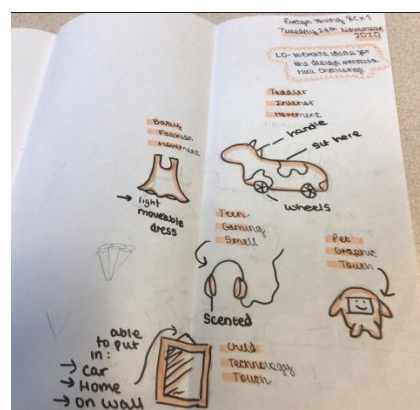 Evelyn Young 8Cx1
Tuesday 24th November
2020
LO- to create ideas for
the design ventura
Mini Challenge
Toddler
Interior
Movement
handle
sit here
wheels
Baby
Fashion
Movement
→ light
moveable
dress
Teen
Gaming
Smell
Scented
Pet
Graphic
Touch
able
to put
in:
→ Car
→ Home
→ On wall
Child
Technology
Touch